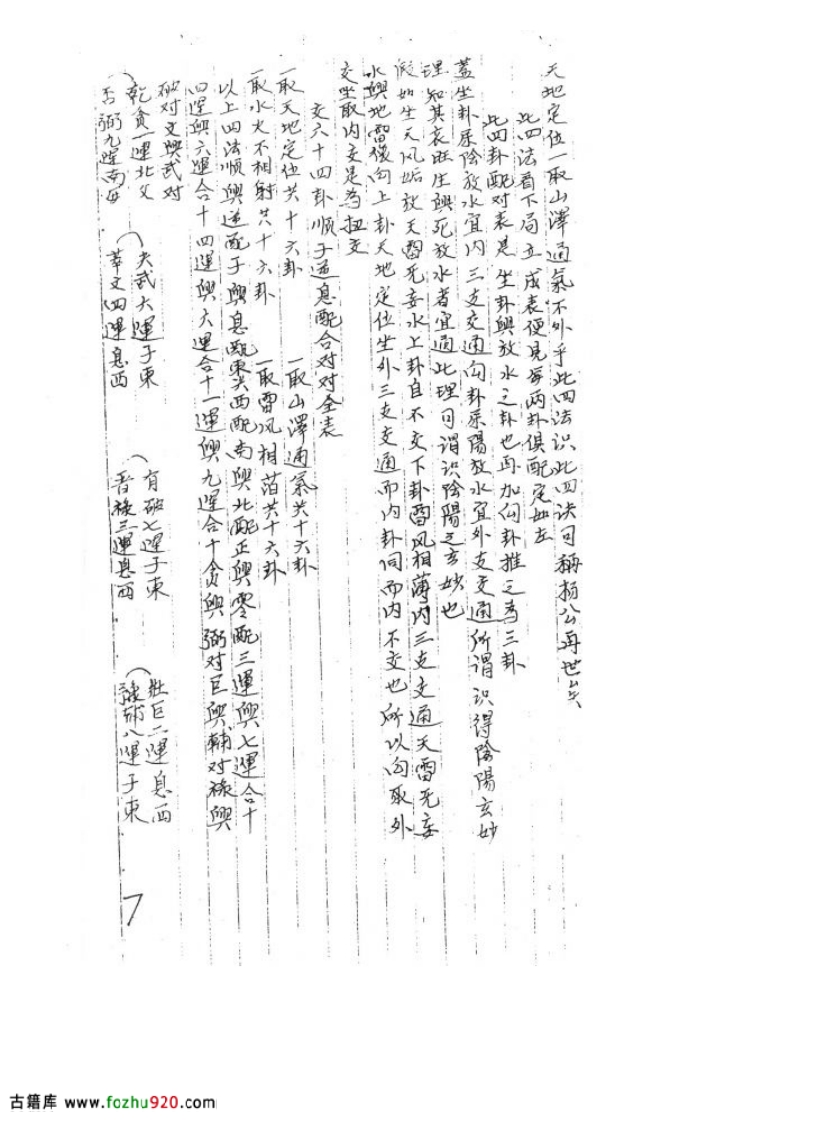 天地定位一取山澤通氣不外乎此四法識此四法可稱楊公再世矣
此四法看下局立成表便見每兩卦俱配定如左
此四卦配对表是坐卦與放水之卦也再加向卦推之為三卦
蓋坐卦屬陰放水宜內三支交通向卦屬陽放水宜外支交通所謂識得陰陽玄妙
理知其衰旺生與死放水者宜通此理可謂識陰陽之玄妙也
假如坐天風姤放天雷无妄水上卦自不交下卦雷风相薄內三支交通天雷无妄
水與地雷復向上卦天地定位坐外三支交通而內卦同而內不交也所以向取外
交坐取內交是為扭交
交六十四卦順子逆息配合对对全表
一取天地定位共十六卦 一取山澤通氣共十六卦
一取水火不相射共十六卦 一取雷风相薄共十六卦
以上四法順與逆配子與息配東與西配南與北配正與零配三運與七運合十
四運與六運合十四運與大運合十一運與九運合十貪與弼对巨與輔对祿與
破对文與武对
乾貪一運北父 夬武六運子東 有破七運子東 壯巨二運息西
否弼九運南母 萃文四運息西 晋祿三運息西 豫輔八運子東
7
古籍库 www.fozhu920.com